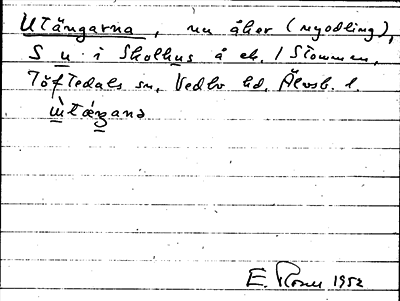 Utängarna, nu åker (nyodling),
S u. i Skolhus å ek. 1 Stommen,
Töftedals sn, Vedbo hd, Älvsb. l.
ùtáŋana
E. 1952